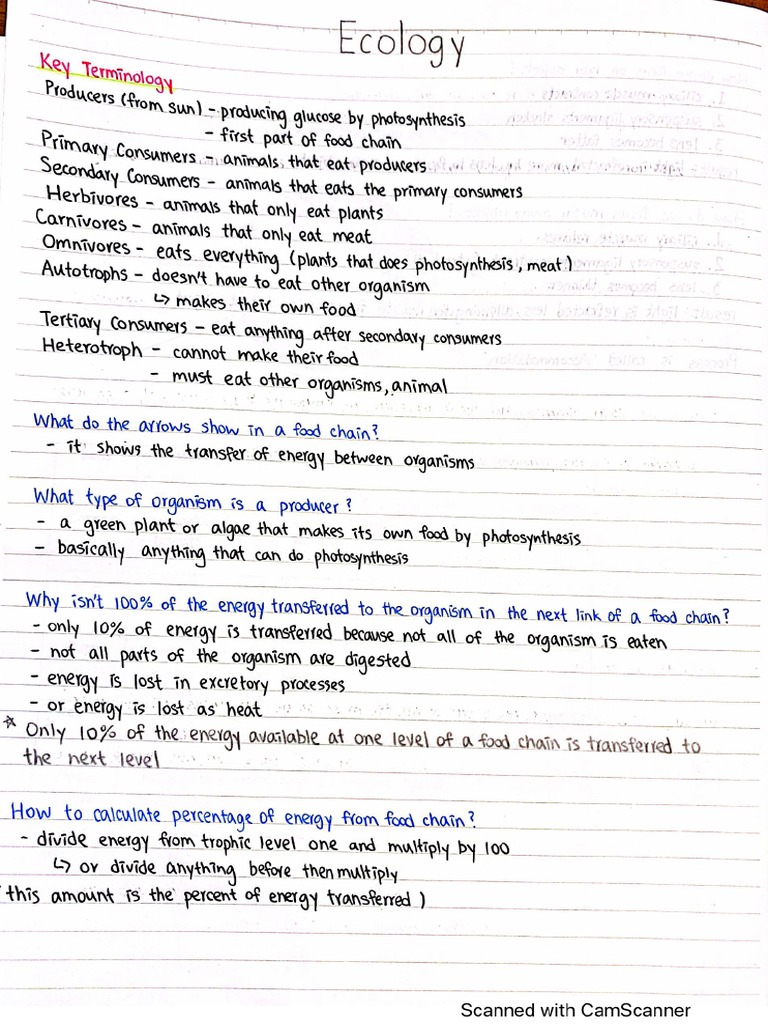 Ecology
Key Terminology
Producers (from sun) - producing glucose by photosynthesis
- first part of food chain
Primary Consumers - animals that eat producers
Secondary Consumers - animals that eats the primary consumers
Herbivores - animals that only eat plants
Carnivores - animals that only eat meat
Omnivores - eats everything (plants that does photosynthesis, meat)
Autotrophs - doesn't have to eat other organism
↳ makes their own food
Tertiary Consumers - eat anything after secondary consumers
Heterotroph - cannot make their food
- must eat other organisms, animal
What do the arrows show in a food chain?
- it shows the transfer of energy between organisms
What type of organism is a producer?
- a green plant or algae that makes its own food by photosynthesis
- basically anything that can do photosynthesis
Why isn't 100% of the energy transferred to the organism in the next link of a food chain?
- only 10% of energy is transferred because not all of the organism is eaten
- not all parts of the organism are digested
- energy is lost in excretory processes
- or energy is lost as heat
* Only 10% of the energy available at one level of a food chain is transferred to
the next level
How to calculate percentage of energy from food chain?
- divide energy from trophic level one and multiply by 100
↳ or divide anything before then multiply
this amount is the percent of energy transferred)
Scanned with CamScanner